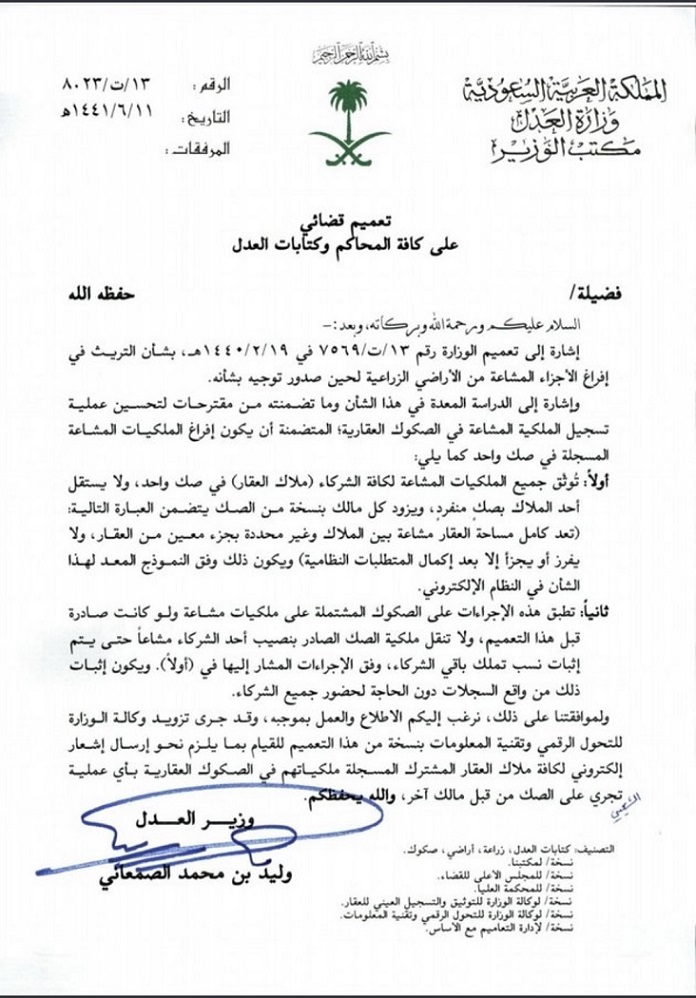 بسم الله الرحمن الرحيم
المملكة العربية السعودية
وزارة العدل
مكتب الوزير
الرقم: ١٣/ت/٨٠٢٣
التاريخ: ١٤٤١/٦/١١هـ
المرفقات:
تعميم قضائي
على كافة المحاكم وكتابات العدل
فضيلة/ حفظه الله
السلام عليكم ورحمة الله وبركاته، وبعد:-
إشارة إلى تعميم الوزارة رقم ١٣/ت/٧٥٦٩ في ١٤٤٠/٢/١٩هـ، بشأن التريث في
إفراغ الأجزاء المشاعة من الأراضي الزراعية لحين صدور توجيه بشأنه.
وإشارة إلى الدراسة المعدة في هذا الشأن وما تضمنته من مقترحات لتحسين عملية
تسجيل الملكية المشاعة في الصكوك العقارية؛ المتضمنة أن يكون إفراغ الملكيات المشاعة
المسجلة في صك واحد كما يلي:
أولاً: تُوثق جميع الملكيات المشاعة لكافة الشركاء (ملاك العقار) في صك واحد، ولا يستقل
أحد الملاك بصكٍ منفردٍ، ويزود كل مالك بنسخة من الصك يتضمن العبارة التالية:
(تعد كامل مساحة العقار مشاعة بين الملاك وغير محددة بجزء معين من العقار، ولا
يفرز أو يجزأ إلا بعد إكمال المتطلبات النظامية) ويكون ذلك وفق النموذج المعد لهذا
الشأن في النظام الإلكتروني.
ثانياً: تطبق هذه الإجراءات على الصكوك المشتملة على ملكيات مشاعة ولو كانت صادرة
قبل هذا التعميم، ولا تنقل ملكية الصك الصادر بنصيب أحد الشركاء مشاعاً حتى يتم
إثبات نسب تملك باقي الشركاء، وفق الإجراءات المشار إليها في (أولاً). ويكون إثبات
ذلك من واقع السجلات دون الحاجة لحضور جميع الشركاء.
ولموافقتنا على ذلك، نرغب إليكم الاطلاع والعمل بموجبه، وقد جرى تزويد وكالة الوزارة
للتحول الرقمي وتقنية المعلومات بنسخة من هذا التعميم للقيام بما يلزم نحو إرسال إشعار
إلكتروني لكافة ملاك العقار المشترك المسجلة ملكياتهم في الصكوك العقارية بأي عملية
تجري على الصك من قبل مالك آخر، والله يحفظكم.
وزير العدل
وليد بن محمد الصمعاني
التصنيف: كتابات العدل، زراعة، أراضي، صكوك.
نسخة/ لمكتبنا.
نسخة/ للمجلس الأعلى للقضاء.
نسخة/ للمحكمة العليا.
نسخة/ لوكالة الوزارة للتوثيق والتسجيل العيني للعقار.
نسخة/ لوكالة الوزارة للتحول الرقمي وتقنية المعلومات.
نسخة/ لإدارة التعاميم مع الأساس.